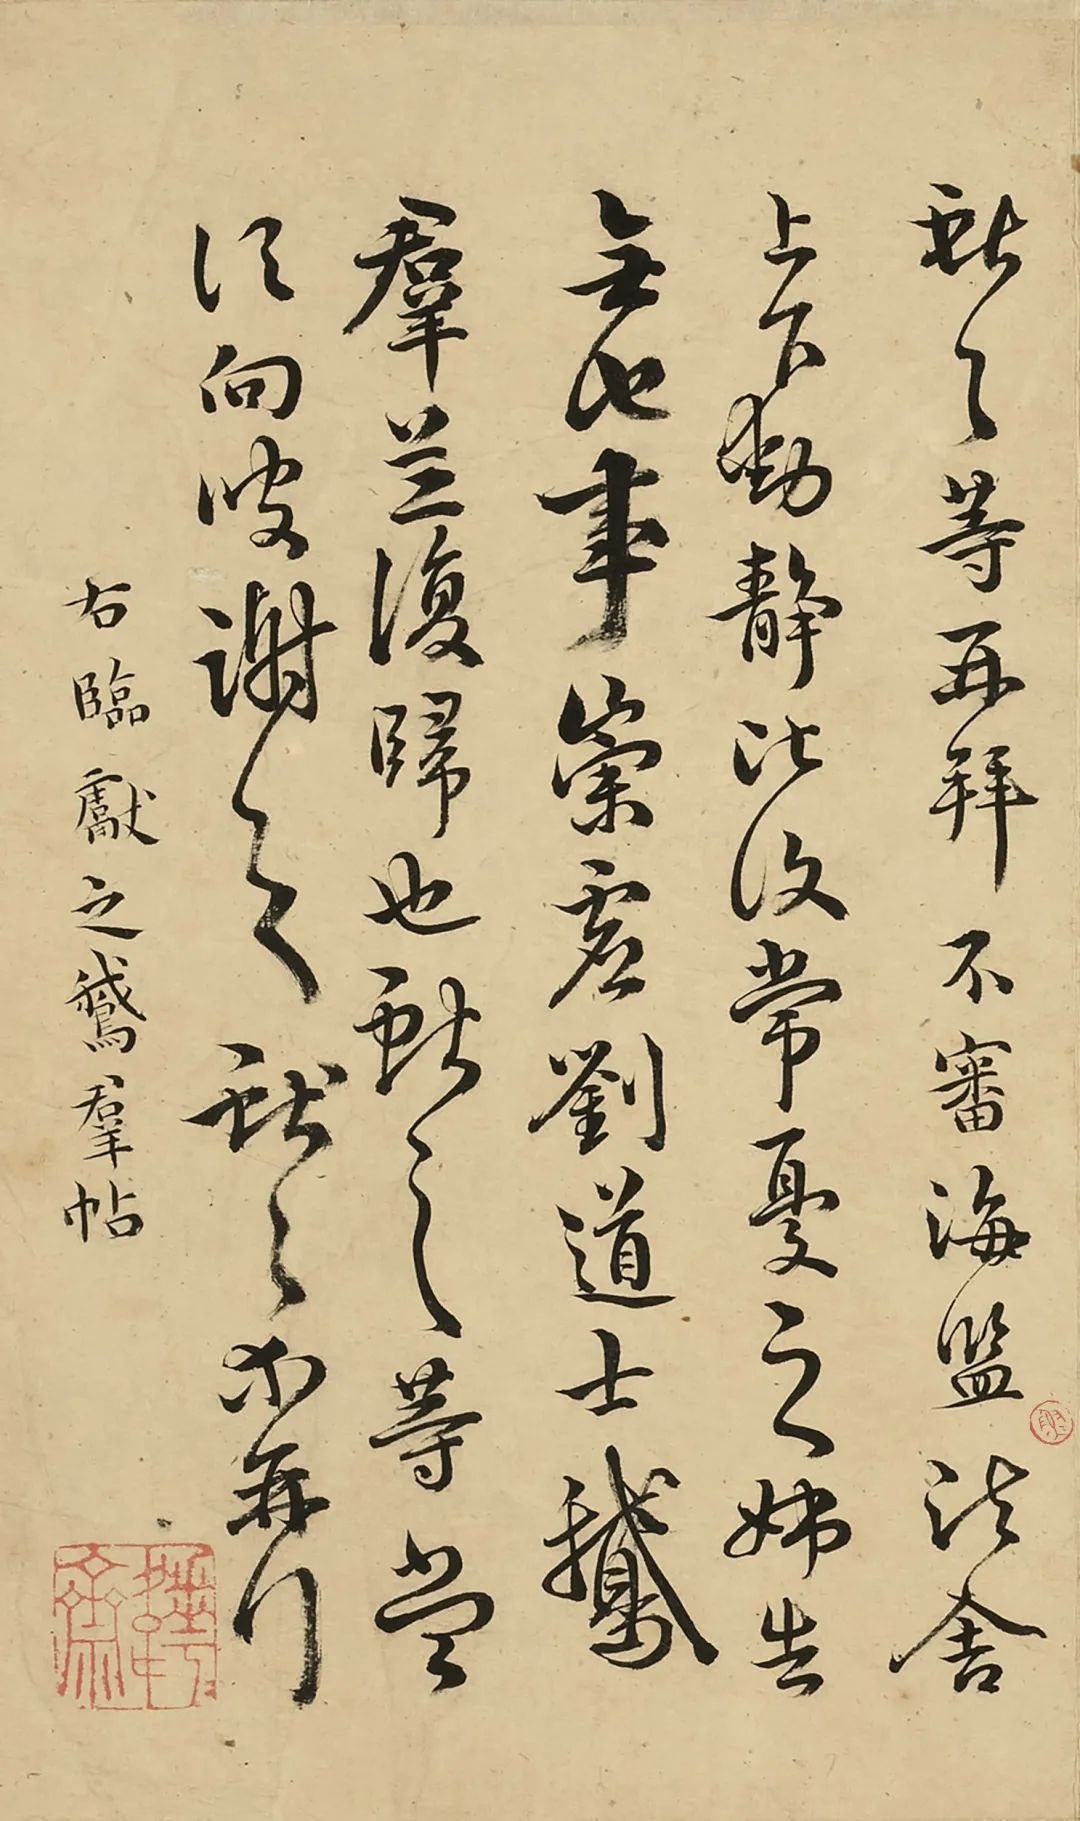 獻之等再拜不審海鹽諸舍
上下動靜比復常憂之姊告
無他事崇虛劉道士鵝
羣並復歸也獻之等當
須向彼謝之獻之等再拜
右臨獻之鵝羣帖